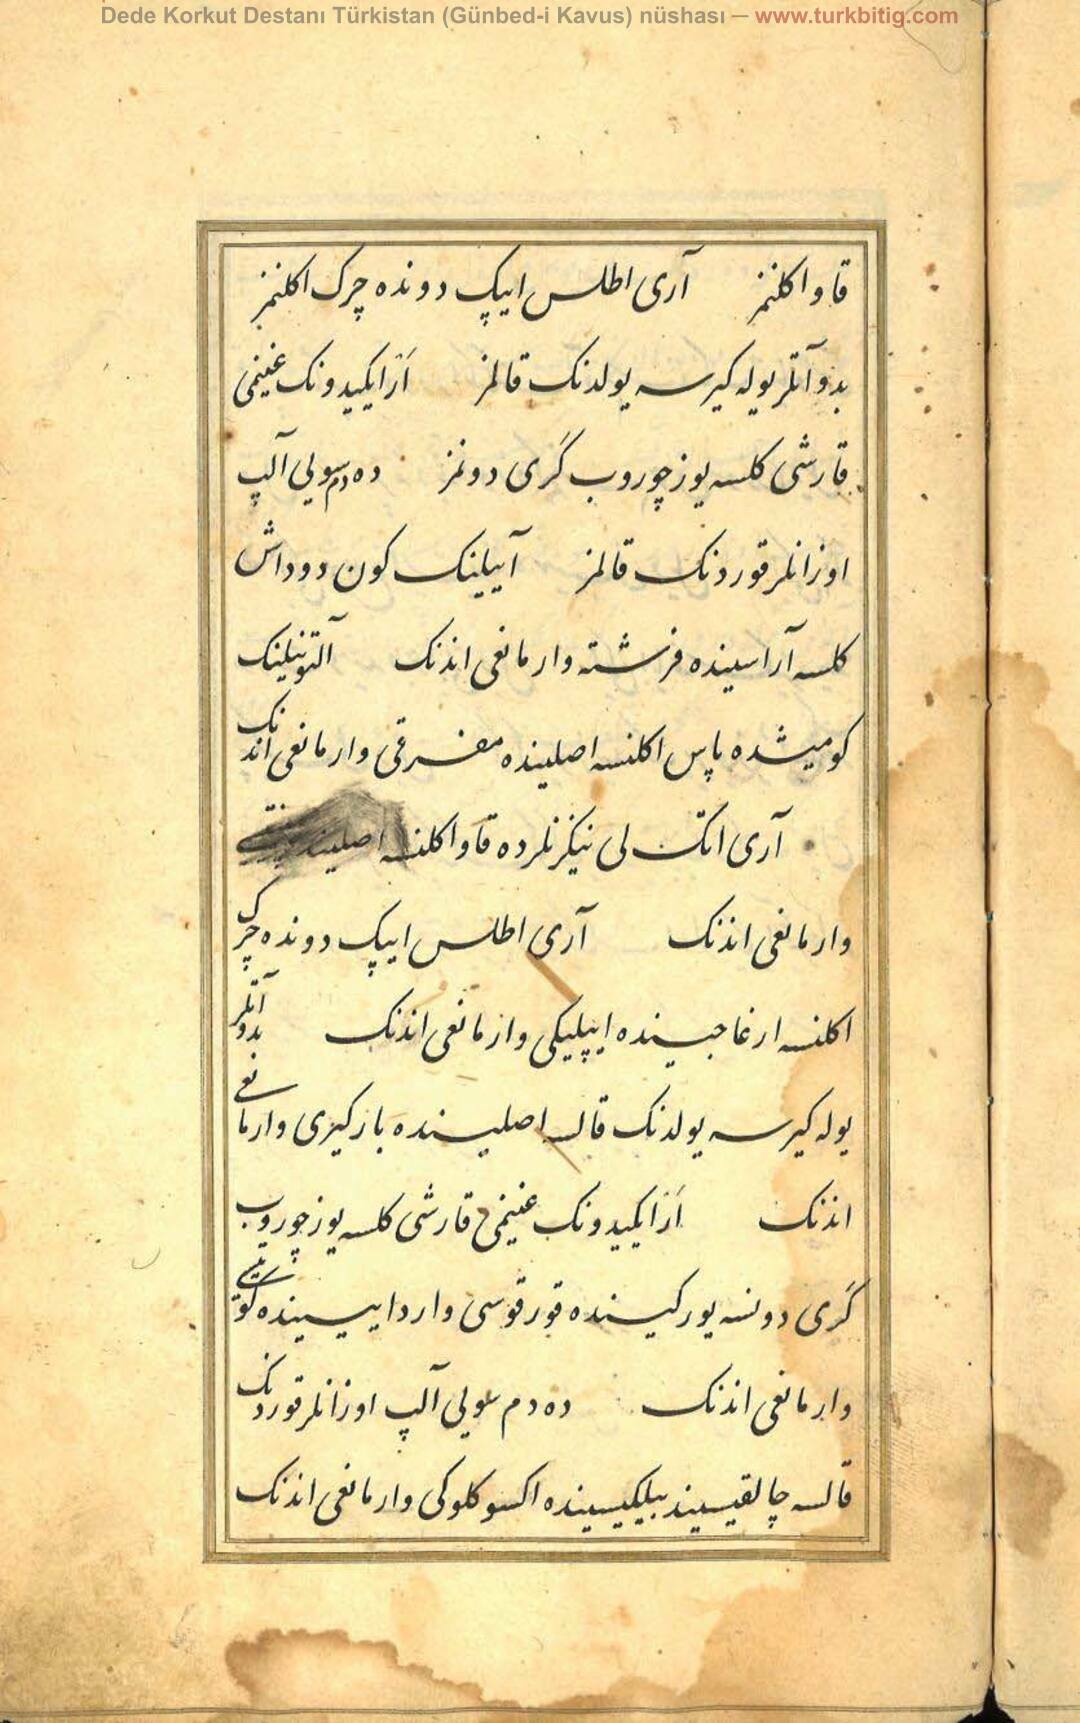 Dede Korkut Destanı Türkistan (Günbed-i Kavus) nüshası — www.turkbitig.com
قاو اکلنمز آری اطلس ایپک دونده چرک اکلنمز
بدو آتلر یوله کیرسه یولدنک قالمز اَرْ ایکیدونک غنیمی
قارشی کلسه یوز چوروب گَری دونمز ده دم سویلی آلپ
اوزانلر قوردنک قالمز آییلینک کون دوداش
کلسه آراسینده فرشته وارمانغی اندنک آلتونیلینک
کومیشده پاس اکلنسه اصلینده مفرقی وارمانغی اندنک
آری اتک لی نیکزنلرده قاو اکلنسه اصلینده
وارمانغی اندنک آری اطلس ایپک دونده چرک
اکلنسه ارغاجینده ایپلیکی وارمانغی اندنک بدو آتلر
یوله کیرسه یولدنک قالسه اصلینده بارکیری وارمانغی
اندنک اَرْ ایکیدونک غنیمی قارشی کلسه یوز چوروب
گَری دونسه یورکینده قورقوسی وار داییسینده
وارمانغی اندنک ده دم سویلی آلپ اوزانلر قوردنک
قالسه چالقیسیند بیلیکیسینده اکسوکلوکی وارمانغی اندنک